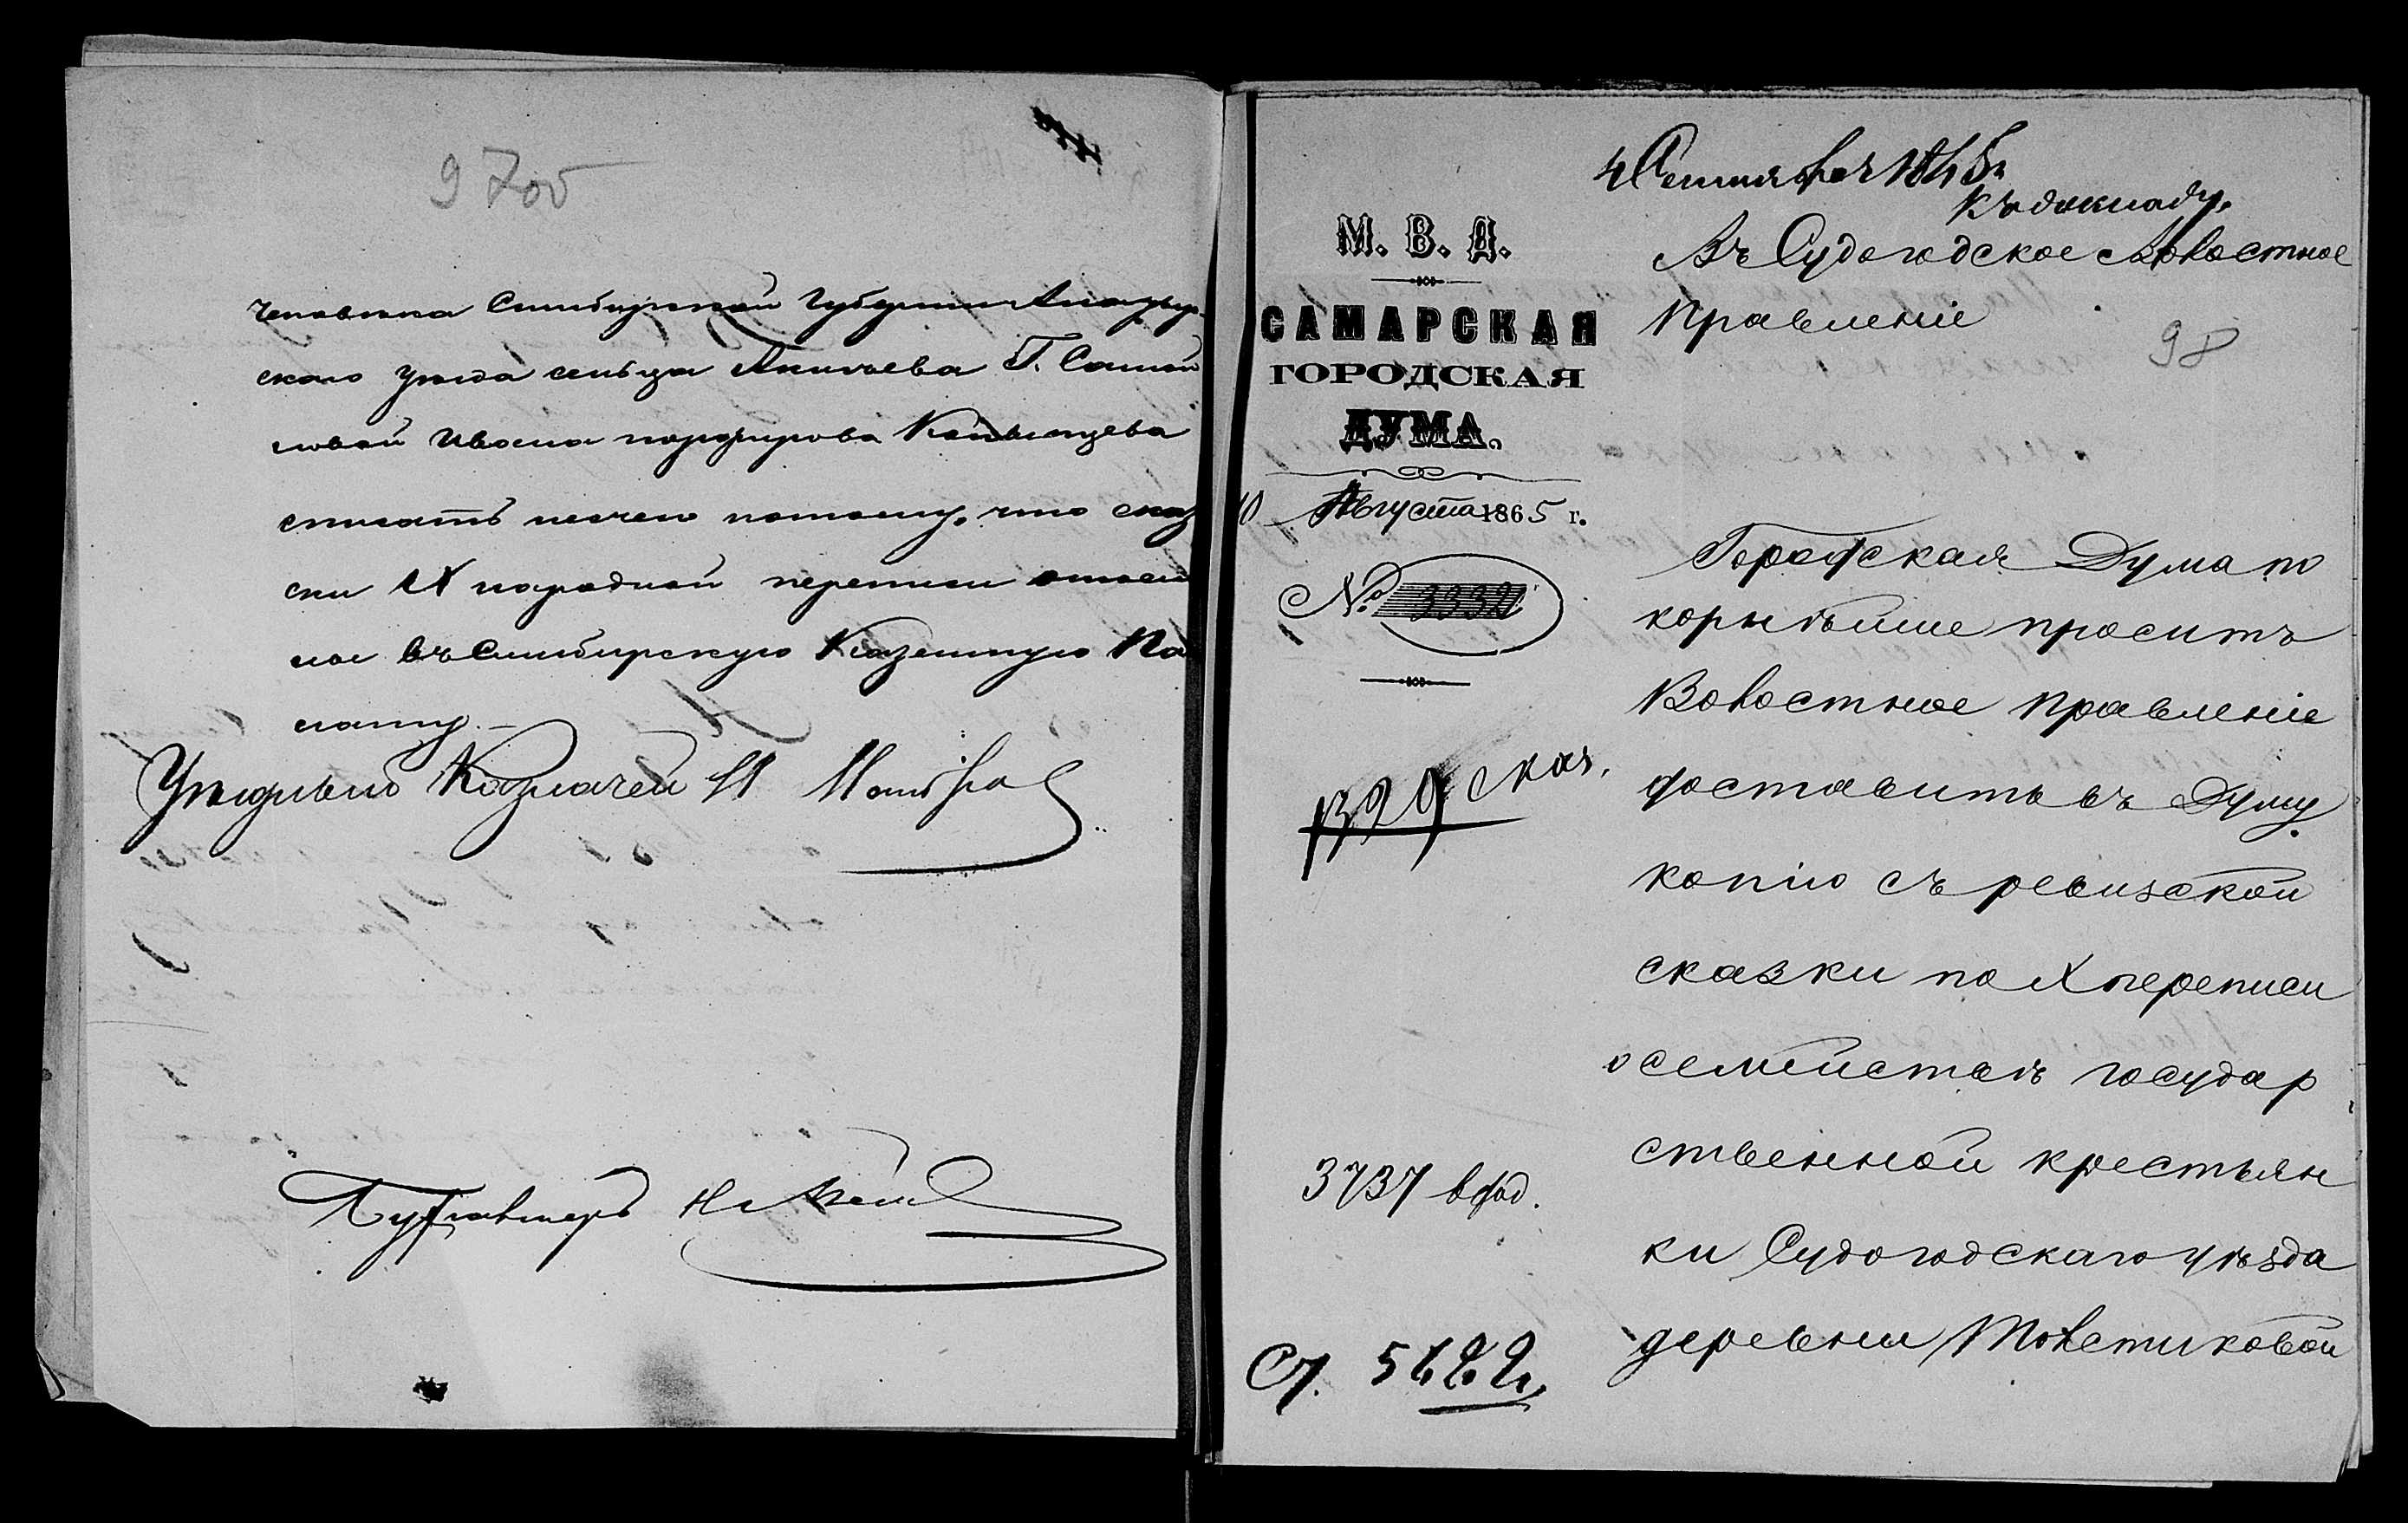 97об
человека Симбирской Губернии Алатыр-
скаго уезда сельца Акинчева Г. Самой
ловой Ивана Порфирова
списать нечего потому, что сказ
ки IX народной переписи отосла
ны въ Симбирскую Казенную Па
лату. —
Уездный Казначей
Бухгалтеръ
4 Сентября 1865 г.
Къ докладу.
М. В. Д.
САМАРСКАЯ
ГОРОДСКАЯ
ДУМА.
10 Августа 1865 г.
№ 3332
1329
3737 вход.
Ст. 5422
98
Въ Судогодское Волостное
Правленіе
Городская Дума по
корнѣйше проситъ
Волостное Правленіе
доставить въ Думу
копію съ ревизской
сказки по X переписи
о семействѣ государ
ственной крестьян
ки Судогодскаго уѣзда
деревни Толстиковой